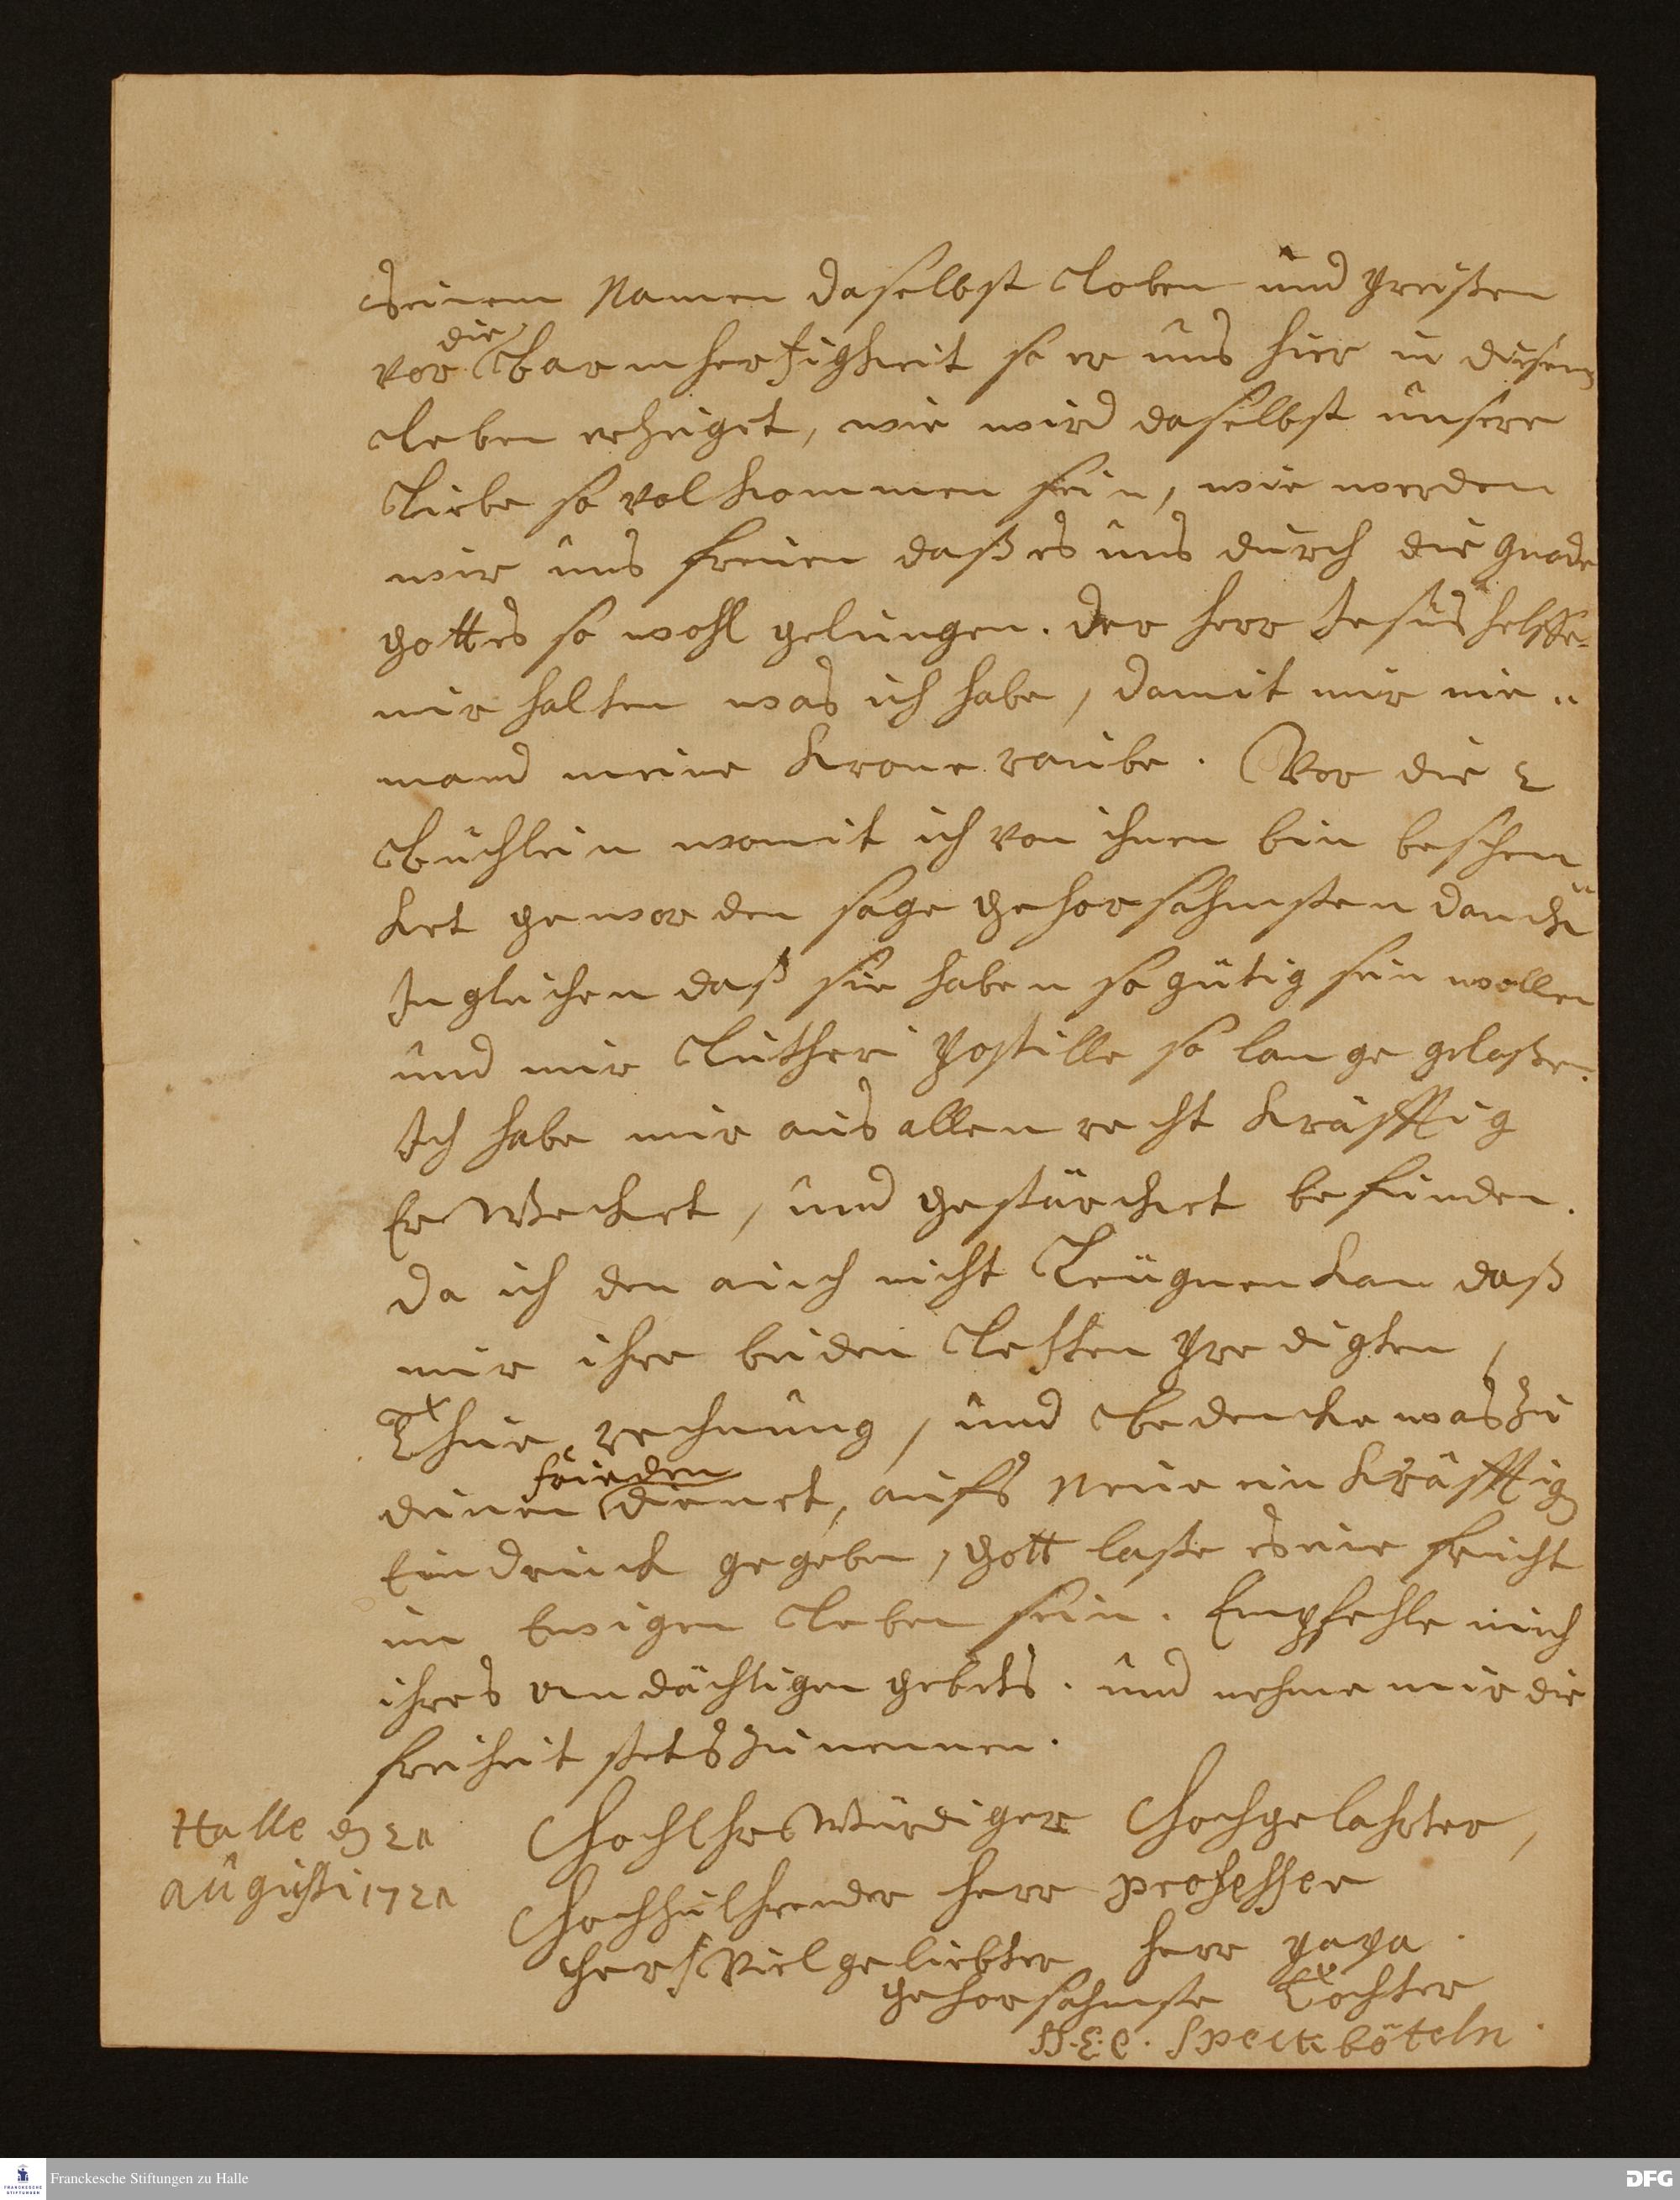 seinem Namen daselbst Loben und Preißen
vor die Barmhertzigkeit so er uns hier in diesem
Leben erzeiget, wie wird daselbst unsere
Liebe so volkommen sein, wie werden
wir uns freuen daß es uns durch die gnade
gottes so wohl gelungen. der herr Jesus helffe
mir halten was ich habe, damit mir nie"
mand meine Krone raube. Vor die 2
Büchlein womit ich von ihnen bin beschen"
ket geworden sage gehorsahmsten danck
Ingleichen daß sie haben so gütig sein wollen
und mir Lutheri Postille so lange gelaßen.
Ich habe mir aus allen recht kräfftig
Er Wecket, und gestärcket befunden.
da ich den auch nicht Leugnen kan daß
mir ihre beiden Letzten Predigten,
Thue rechnung, und Bedencke was zu
deinen frieden dienet, aufs Neue ein kräfftig
Eindruck gegeben, gott laße es eine frucht
im Ewigen Leben sein. Empfehle mich
ihres andächtigen gebets. und nehme mir die
freiheit stets zu nennen.
Halle d 21
Augusti 1721
HochEhrWürdiger Hochgelahrter,
HochzuEhrender herr professer
HertzVielgeliebter herr papa.
gehorsahmste Tochter
S. E. C. Speckböteln.
Franckesche Stiftungen zu Halle
DFG